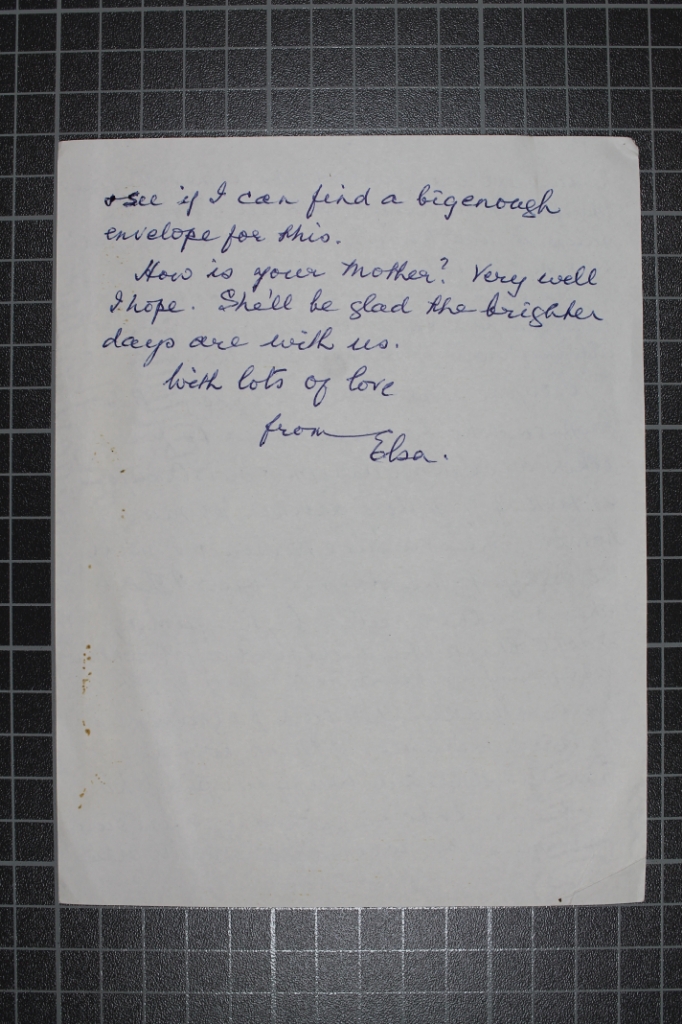 + see if I can find a bigenough
envelope for this.
How is your Mother? Very well
I hope. She'll be glad the brighter
days are with us.
With lots of love
from
Elsa.